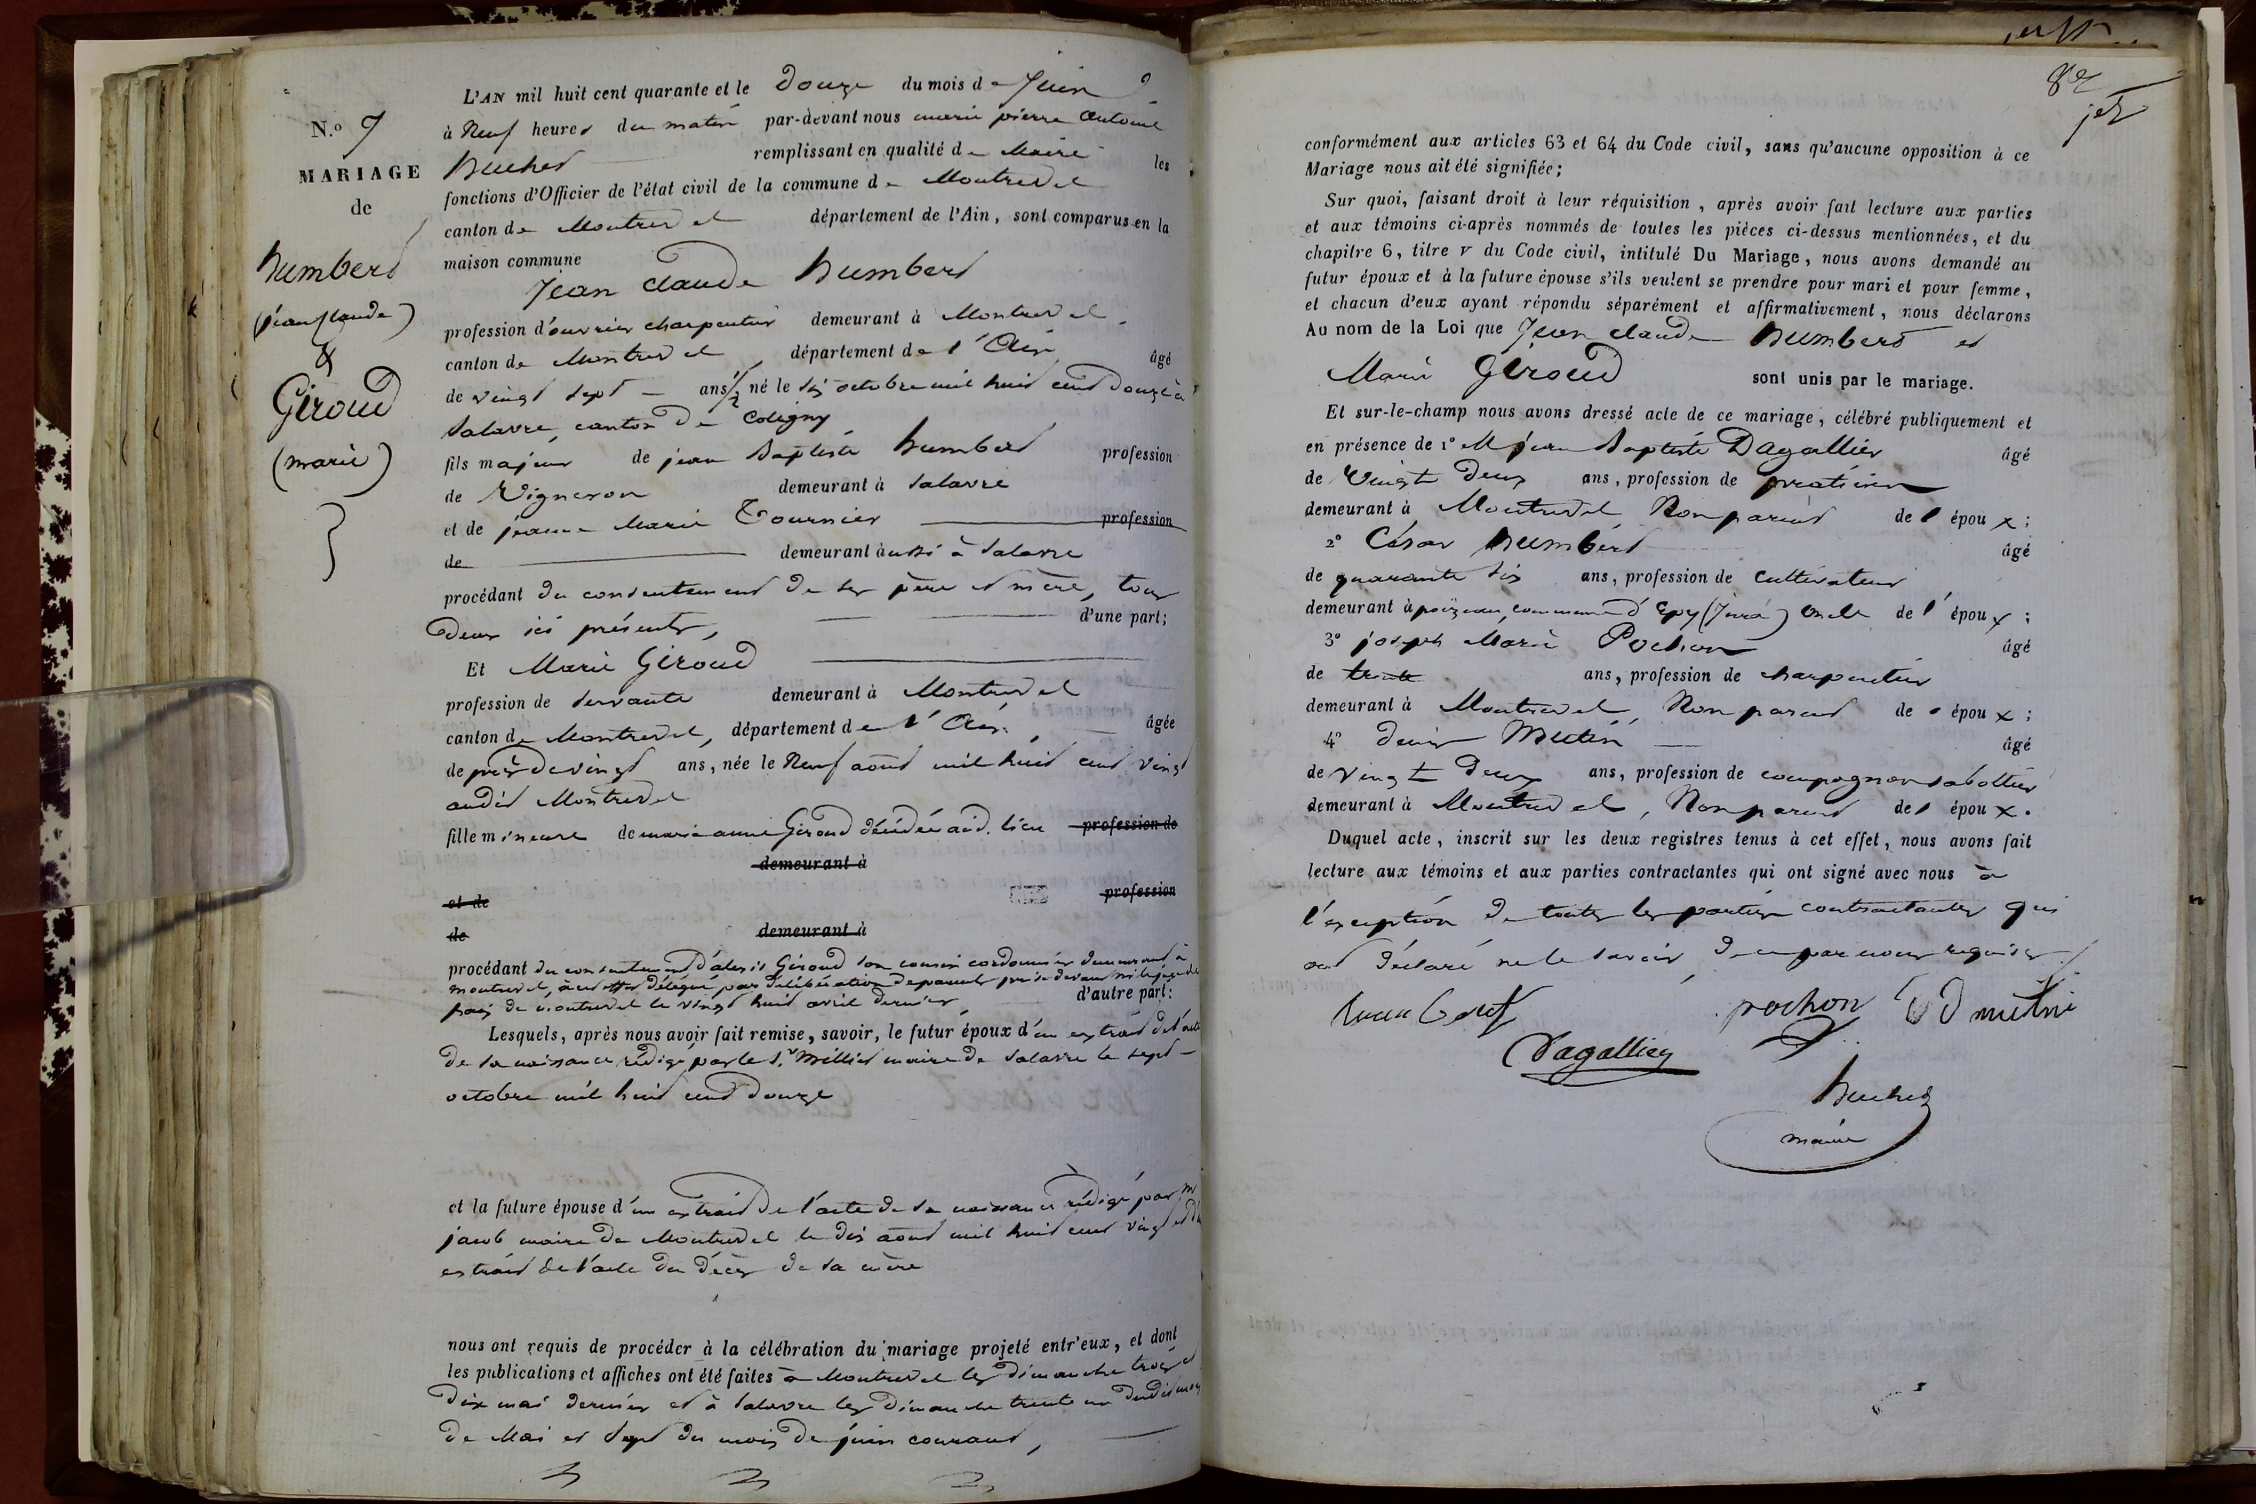 N.o 7
MARIAGE
de
humbert
(jean claude)
&
Giroud
(marie)
L'AN mil huit cent quarante et le Douze du mois de Juin
à Neuf heures du matin par-devant nous marie pierre Antoine
huchet remplissant en qualité de Maire les
fonctions d'Officier de l'état civil de la commune de Montrevel
canton de Montrevel département de l'Ain, sont comparus en la
maison commune
Jean claude humbert
profession d'ouvrier charpentier demeurant à Montrevel
canton de Montrevel, département de l'Ain, âgé
de vingt sept ans 1/2 né le six octobre mil huit cent Douze à
Salavre, canton de Coligny
fils majeur de jean Baptiste humbert profession
de Vigneron demeurant à Salavre
et de jeanne Marie Tournier profession
de demeurant aussi à Salavre
procédant du consentement de ses père et mère, tous
deux ici présents, d'une part;
Et Marie Giroud
profession de servante demeurant à Montrevel
canton de Montrevel, département de l'Ain, âgée
de près de vingt ans, née le Neuf août mil huit cent vingt
audit Montrevel
fille mineure de marie anne Giroud décédée aud. lieu profession de
demeurant à
et de profession
de demeurant à
procédant du consentement d'alexis Giroud son cousin cordonnier demeurant à
montrevel, à cet effet délégué par délibération de parents prise devant M. le juge de
paix de montrevel le vingt huit avril dernier d'autre part:
Lesquels, après nous avoir fait remise, savoir, le futur époux d'un extrait de l'acte
de sa naissance rédigé par le S.r Milliet maire de Salavre le sept
octobre mil huit cent douze
et la future épouse d'un extrait de l'acte de sa naissance rédigé par M.
jacob maire de Montrevel le dix août mil huit cent vingt et d'un
extrait de l'acte du décès de sa mère
nous ont requis de procéder à la célébration du mariage projeté entr'eux, et dont
les publications et affiches ont été faites à Montrevel les dimanche trois et
dix mai dernier et à Salavre les dimanche trente un dudit mois
de Mai et Sept du mois de juin courant,
82
conformément aux articles 63 et 64 du Code civil, sans qu'aucune opposition à ce
Mariage nous ait été signifiée;
Sur quoi, faisant droit à leur réquisition, après avoir fait lecture aux parties
et aux témoins ci-après nommés de toutes les pièces ci-dessus mentionnées, et du
chapitre 6, titre v du Code civil, intitulé Du Mariage, nous avons demandé au
futur époux et à la future épouse s'ils veulent se prendre pour mari et pour femme,
et chacun d'eux ayant répondu séparément et affirmativement, nous déclarons
Au nom de la Loi que Jean claude humbert et
Marie Giroud sont unis par le mariage.
Et sur-le-champ nous avons dressé acte de ce mariage, célébré publiquement et
en présence de 1o M jean Baptiste Dagallier âgé
de Vingt Deux ans, profession de praticien
demeurant à Montrevel Non parent de l'époux;
2o César humbert âgé
de quarante six ans, profession de cultivateur
demeurant à poizeau, commune d'Epy (Jura) oncle de l'époux;
3o joseph Marie Pochon âgé
de trente ans, profession de charpentier
demeurant à Montrevel, Non parent de l'époux;
4o Denis Mutin âgé
de Vingt Deux ans, profession de compagnon sabottier
demeurant à Montrevel, Non parent de l'époux.
Duquel acte, inscrit sur les deux registres tenus à cet effet, nous avons fait
lecture aux témoins et aux parties contractantes qui ont signé avec nous à
l'exception de toutes les parties contractantes qui
ont déclaré ne le savoir, de ce par nous requises.
humbert
pochon
D mutin
Dagallier
huchet
maire